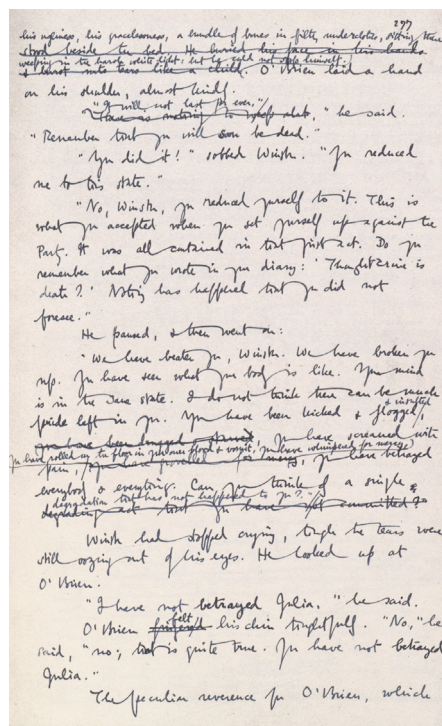 297
his ugliness, his gracelessness, a bundle of bones in filthy underclothes, sitting there
stood beside the bed. He buried his face in his hands
weeping in the harsh white light: but he could not stop himself.
& burst into tears like a child. O'Brien laid a hand
on his shoulder, almost kindly.
"It will not last for ever,"
he said.
"Remember that you will soon be dead."
"You did it!" sobbed Winston. "You reduced
me to this state."
"No, Winston, you reduced yourself to it. This is
what you accepted when you set yourself up against the
Party. It was all contained in that first act. Do you
remember what you wrote in your diary: 'Thoughtcrime is
death?' Nothing has happened that you did not
foresee."
He paused, & then went on:
"We have beaten you, Winston. We have broken you
up. You have seen what your body is like. Your mind
is in the same state. I do not think there can be much
pride left in you. You have been kicked & flogged
& insulted,
you have been, you have screamed with
You have rolled on the floor in your own blood & vomit, you have whimpered for mercy,
pain, you have betrayed
everybody & everything. Can you think of a single
degradation that has not happened to you?"
degrading act that you have not committed?"
Winston had stopped crying, though the tears were
still oozing out of his eyes. He looked up at
O'Brien.
"I have not betrayed Julia," he said.
felt
O'Brien fingered his chin thoughtfully. "No," he
said, "no; that is quite true. You have not betrayed
Julia."
The peculiar reverence for O'Brien, which